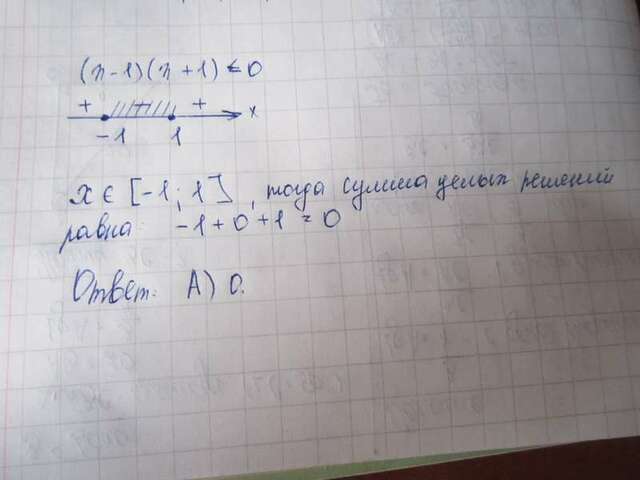 (x-1)(x+1) ≤ 0
+ - + x
-1 1
x ∈ [-1; 1], тогда сумма целых решений
равна: -1+0+1=0
Ответ: А) 0.